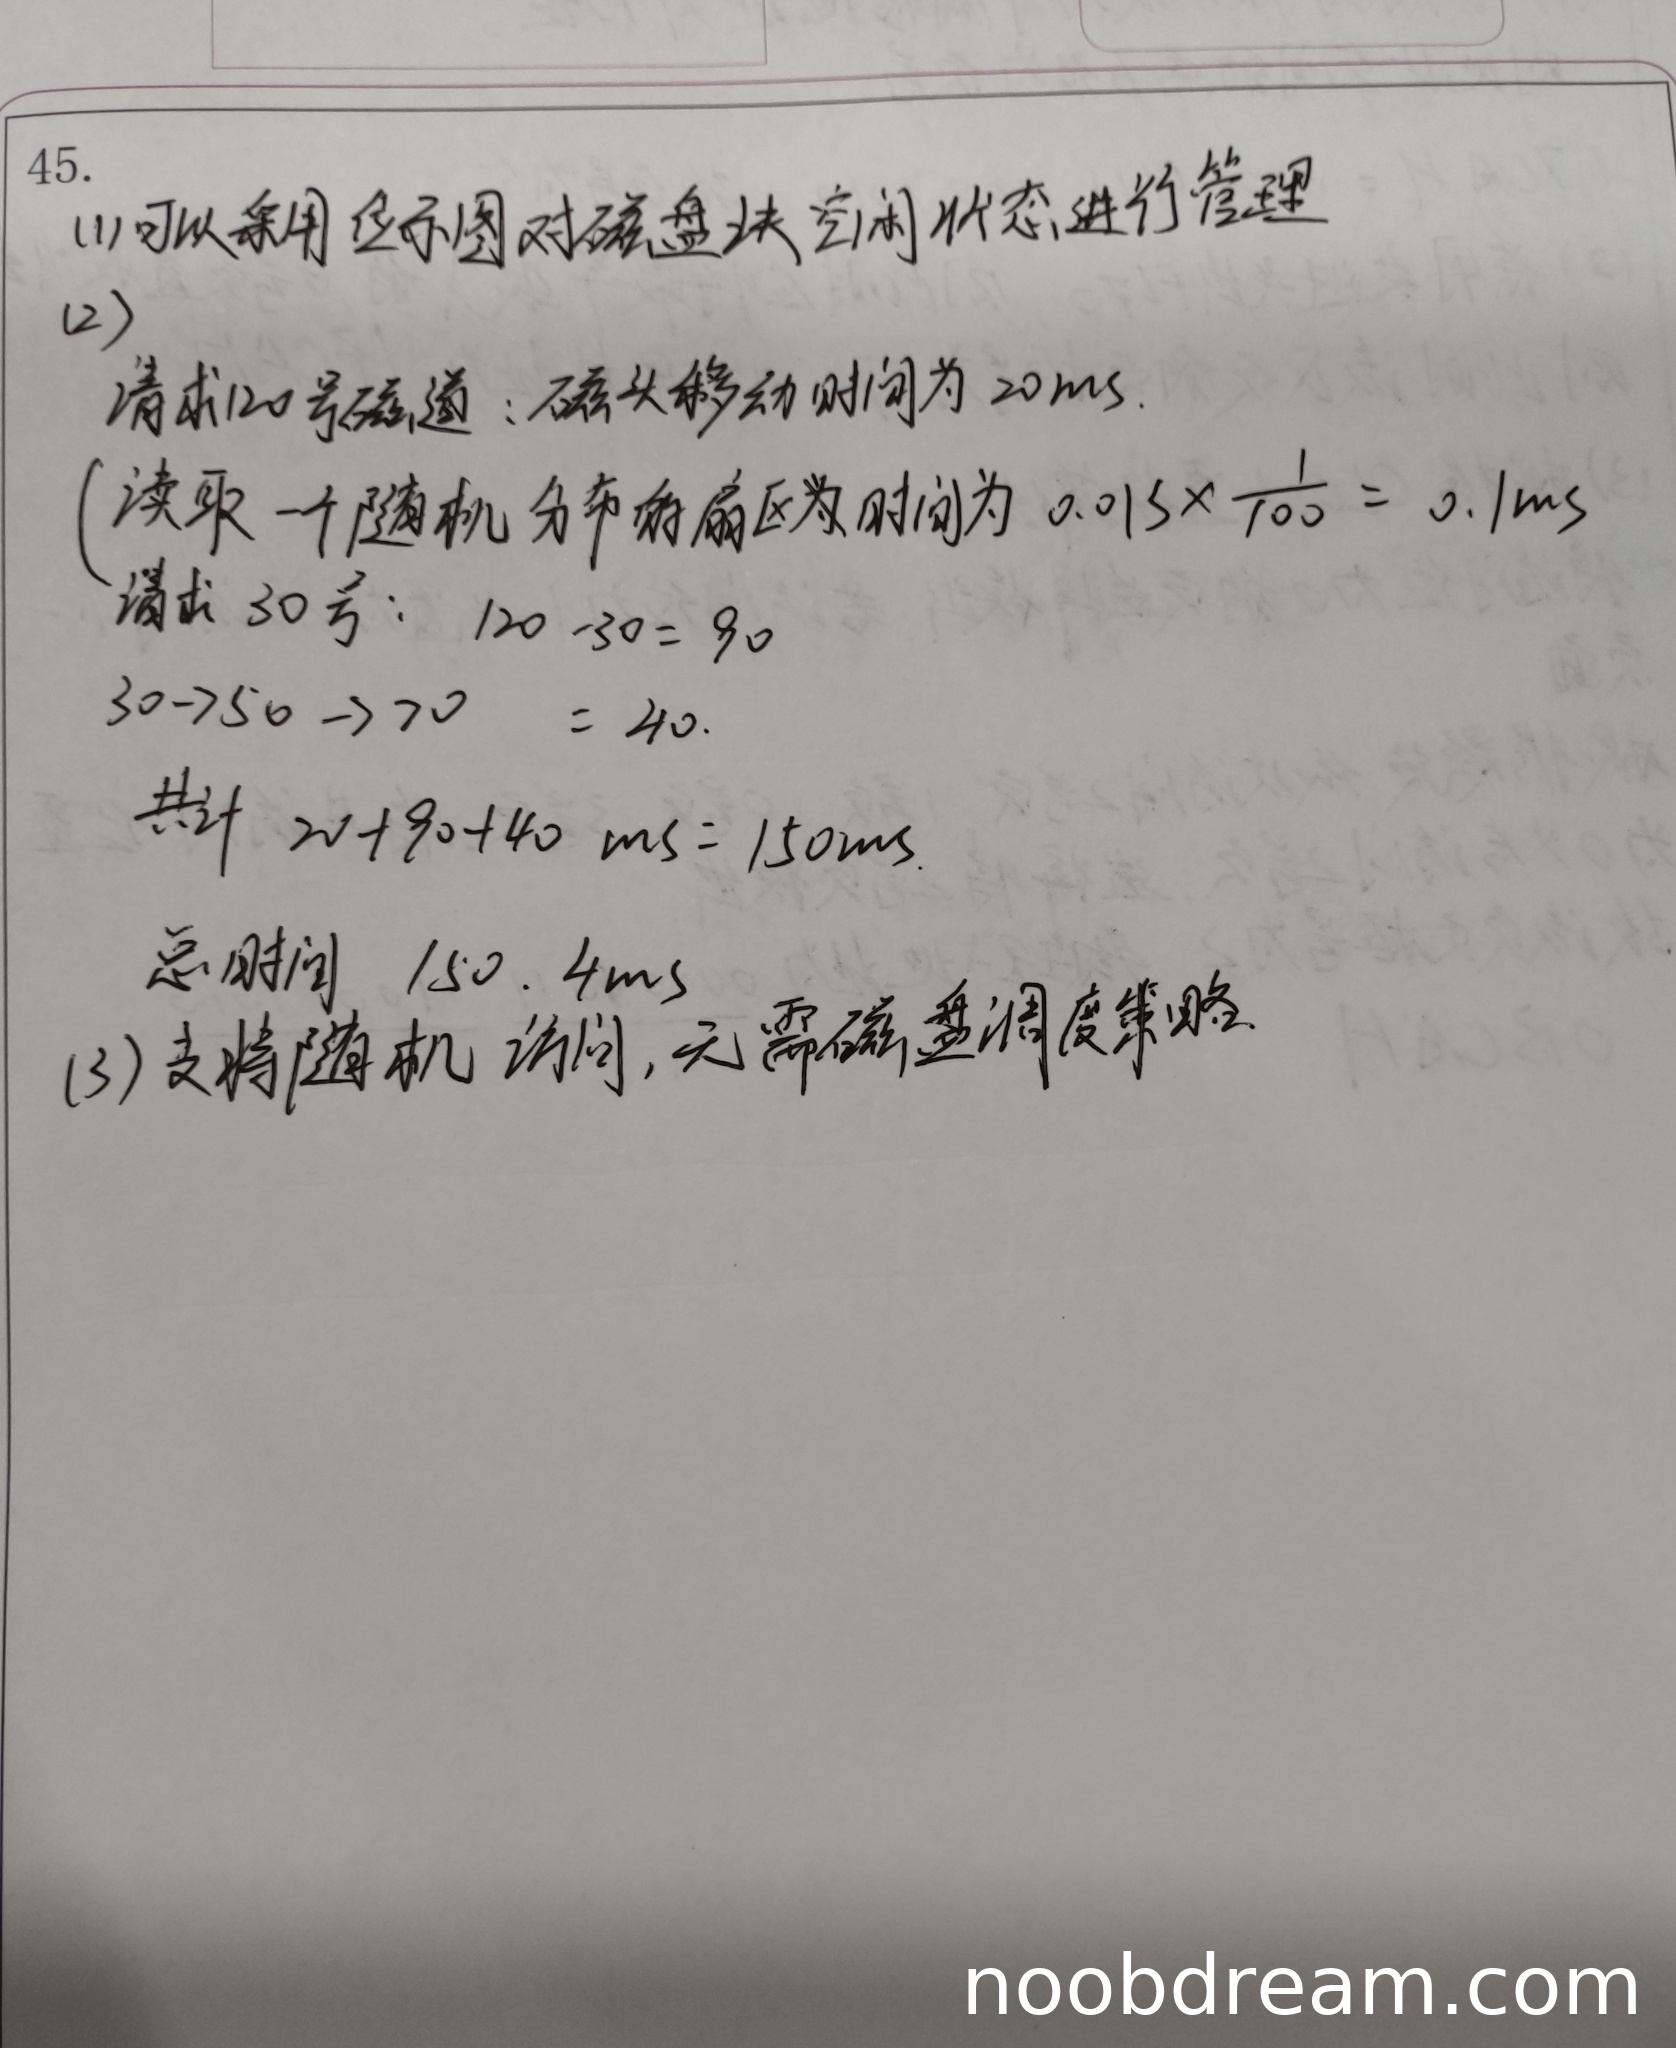 45.
(1)可以采用位示图对磁盘块空闲状态进行管理
(2)
请求120号磁道：磁头移动时间为20ms.
读取一个随机分布的扇区为时间为 0.01s × 1/100 = 0.1ms
请求 30号： 120-30=90
30->50->70 = 40.
共计 20+90+40 ms = 150ms.
总时间 150.4ms
(3)支持随机访问，无需磁盘调度策略
noobdream.com